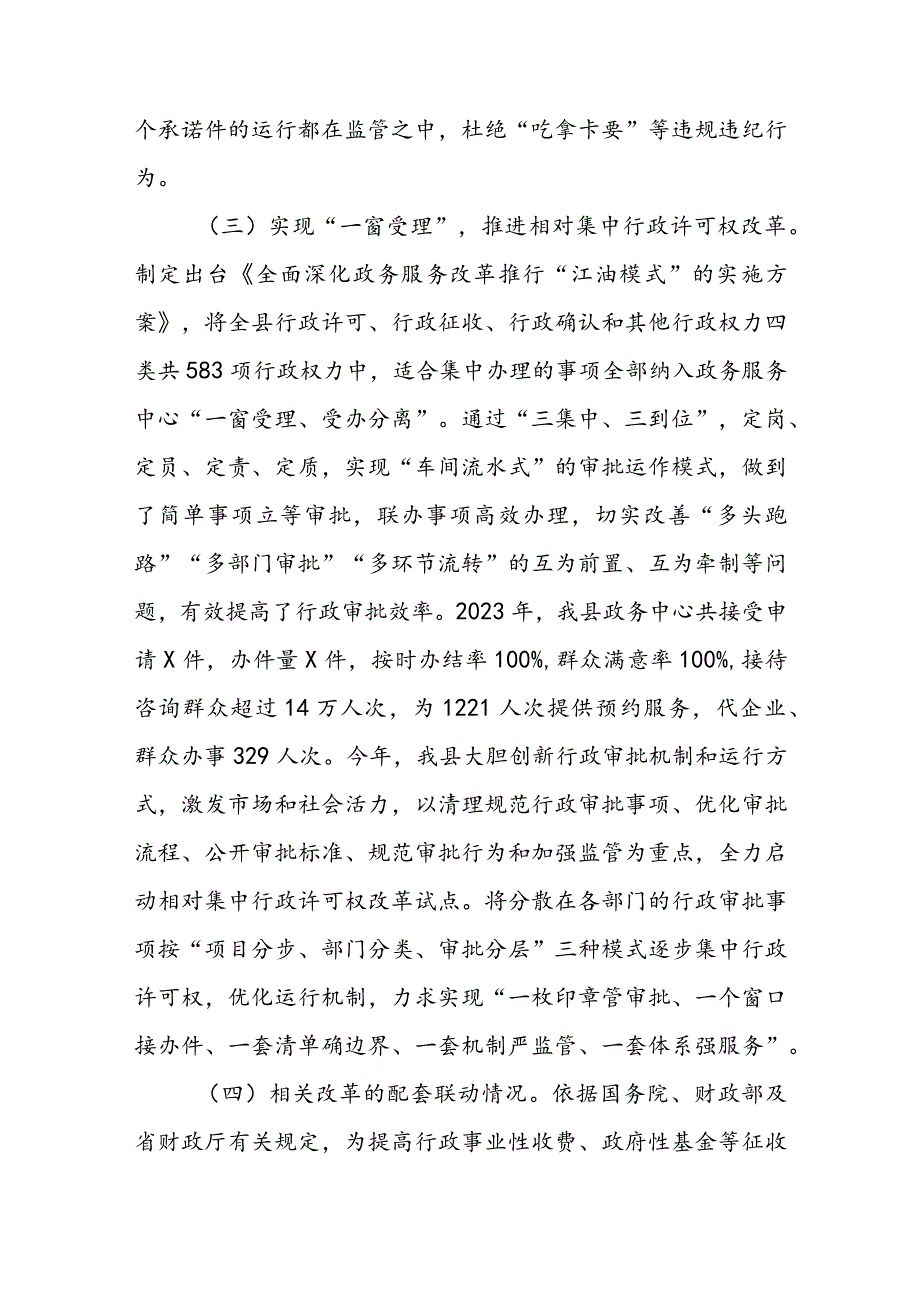 个承诺件的运行都在监管之中，杜绝“吃拿卡要”等违规违纪行
为。
（三）实现“一窗受理”，推进相对集中行政许可权改革。
制定出台《全面深化政务服务改革推行“江油模式”的实施方
案》，将全县行政许可、行政征收、行政确认和其他行政权力四
类共583项行政权力中，适合集中办理的事项全部纳入政务服务
中心“一窗受理、受办分离”。通过“三集中、三到位”，定岗、
定员、定责、定质，实现“车间流水式”的审批运作模式，做到
了简单事项立等审批，联办事项高效办理，切实改善“多头跑
路”“多部门审批”“多环节流转”的互为前置、互为牵制等问
题，有效提高了行政审批效率。2023年，我县政务中心共接受申
请X件，办件量X件，按时办结率100%,群众满意率100%,接待
咨询群众超过14万人次，为1221人次提供预约服务，代企业、
群众办事329人次。今年，我县大胆创新行政审批机制和运行方
式，激发市场和社会活力，以清理规范行政审批事项、优化审批
流程、公开审批标准、规范审批行为和加强监管为重点，全力启
动相对集中行政许可权改革试点。将分散在各部门的行政审批事
项按“项目分步、部门分类、审批分层”三种模式逐步集中行政
许可权，优化运行机制，力求实现“一枚印章管审批、一个窗口
接办件、一套清单确边界、一套机制严监管、一套体系强服务”。
（四）相关改革的配套联动情况。依据国务院、财政部及
省财政厅有关规定，为提高行政事业性收费、政府性基金等征收